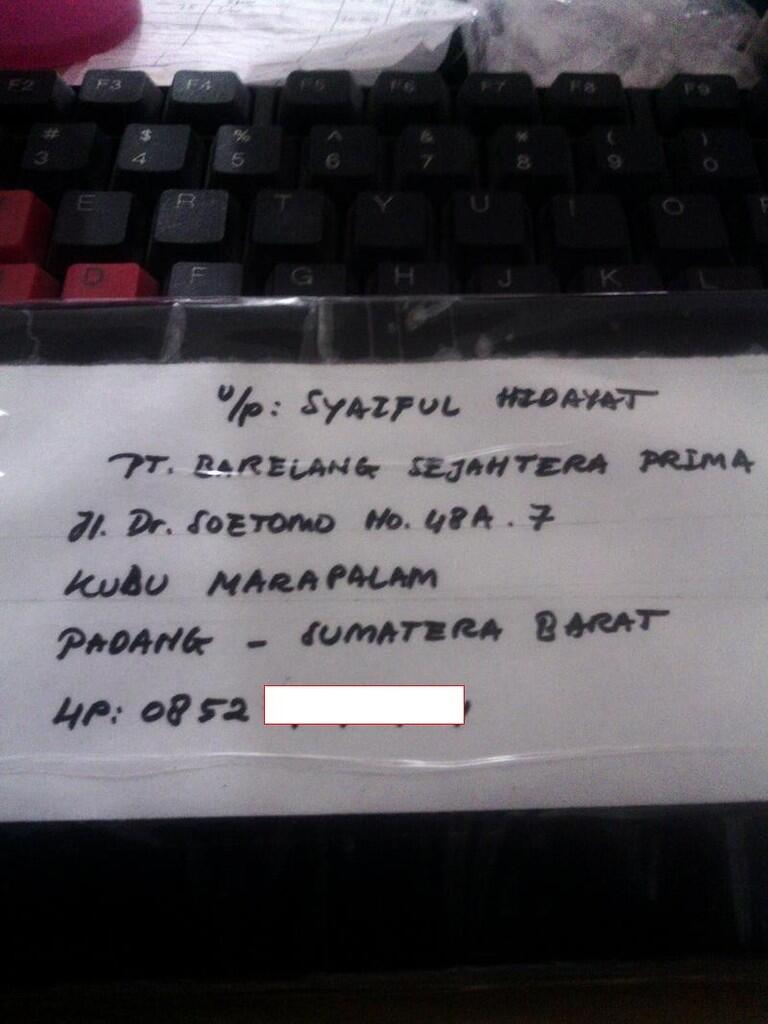 F2 F3 F4 F5 F6 F7 F8 F9
# $ % ^ & * ( )
3 4 5 6 7 8 9 0
E R T Y U I O
D F G H J K L
u/p: SYAIFUL HIDAYAT
PT. BARELANG SEJAHTERA PRIMA
Jl. Dr. SOETOMO No. 48A. 7
KUBU MARAPALAM
PADANG - SUMATERA BARAT
HP: 0852